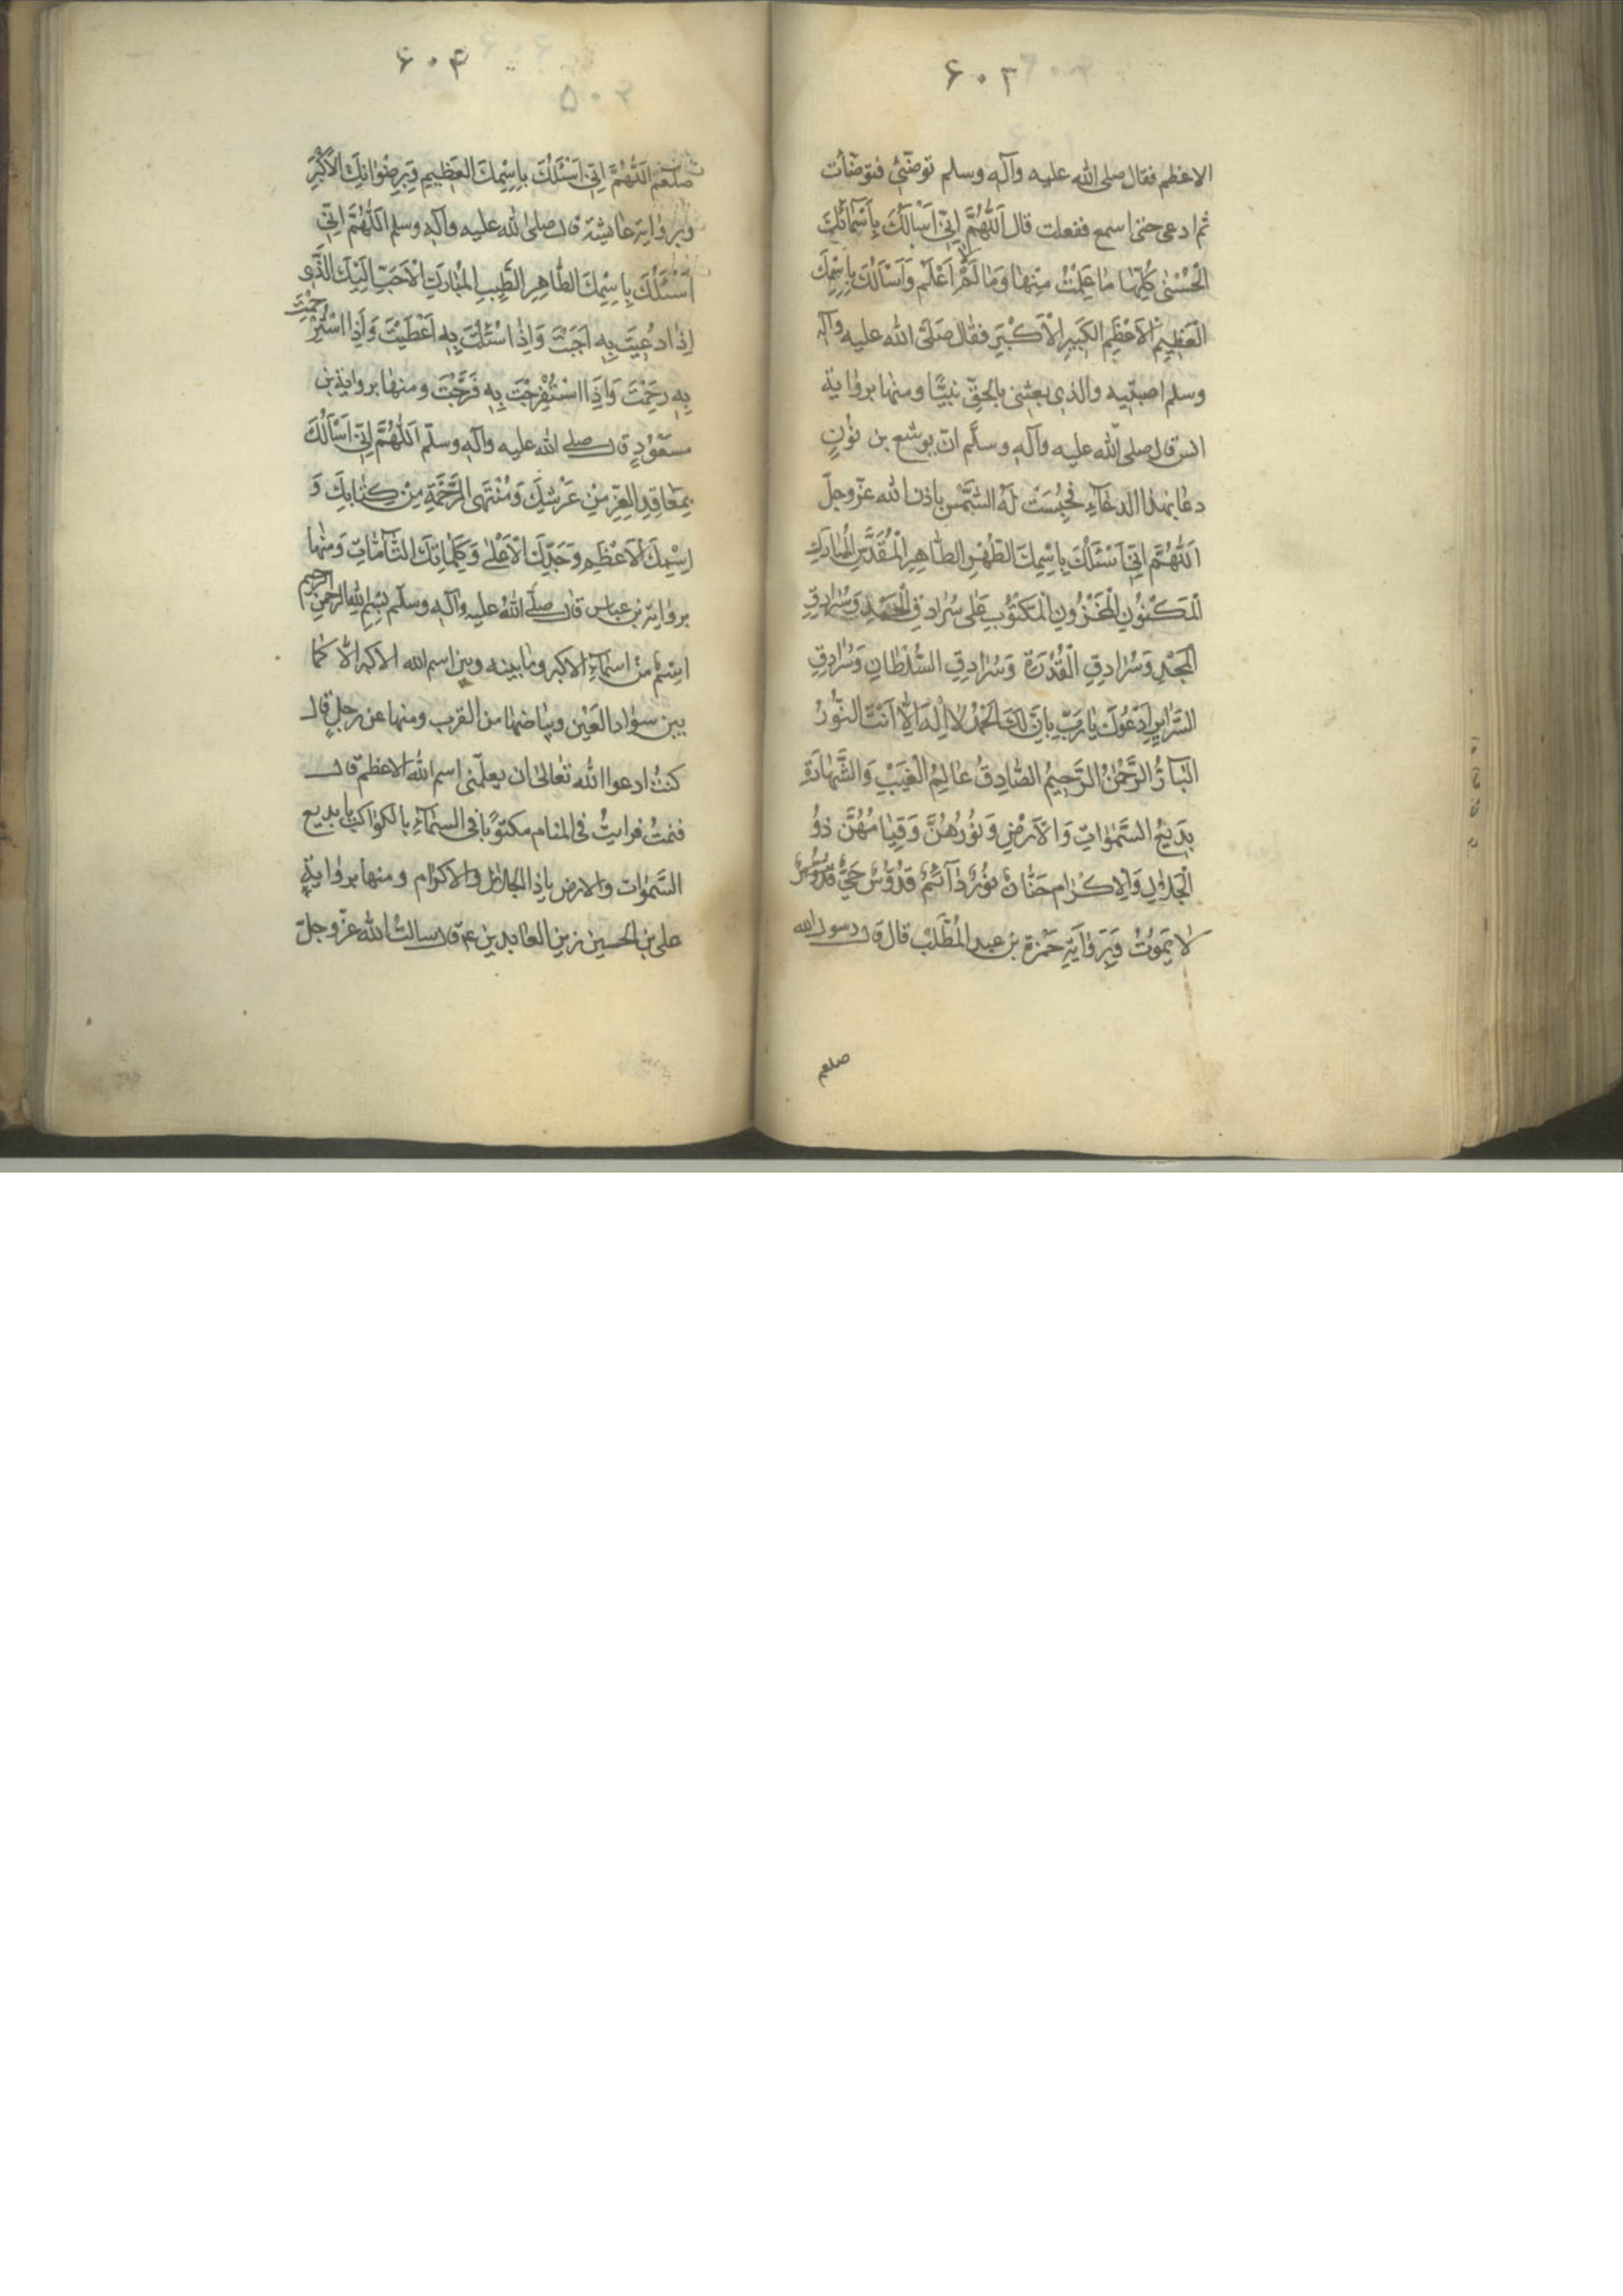 ۶۰۳
الاعظم فقال صلى الله عليه وآله وسلم توضّئى فتوضّأت
ثم ادعى حتى اسمع ففعلت قال اَللّٰهُمَّ اِنّى اَسْاَلُكَ بِاَسْمَآئِكَ
الْحُسْنٰى كُلِّهٰا مٰا عَلِمْتُ مِنْهٰا وَمٰا لَمْ اَعْلَمْ وَاَسْاَلُكَ بِاِسْمِكَ
الْعَظِيمِ الْاَعْظَمِ الْكَبِيرِ الْاَكْبَرِ فقال صَلَّى الله عليه وآله
وسلم اصبتيه والذى بعثنى بالحقّ نبيًّا ومنها بروٰاية
انس قال صلى الله عليه وآله وسلّم انّ يوشع بن نُونٍ
دعٰا بهذا الدعٰآءِ فَحُبِسَتْ لَهُ الشَّمْسُ باذن الله عزّ وجلّ
اَللّٰهُمَّ اِنّى اَسْئَلُكَ بِاِسْمِكَ الطُّهْرِ الطّٰاهِرِ الْمُقَدَّسِ الْمُبٰارَكِ
الْمَكْنُونِ الْمَخْزُونِ الْمَكْتُوبِ عَلٰى سُرٰادِقِ الْحَمْدِ وَسُرٰادِقِ
الْمَجْدِ وَسُرٰادِقِ الْقُدْرَةِ وَسُرٰادِقِ السُّلْطٰانِ وَسُرٰادِقِ
السَّرٰايِرِ اَدْعُوكَ يٰا رَبِّ بِاَنَّ لَكَ الْحَمْدُ لٰا اِلٰهَ اِلّٰا اَنْتَ النُّورُ
الْبٰآرُّ الرَّحْمٰنُ الرَّحِيمُ الصّٰادِقُ عٰالِمُ الْغَيْبِ وَالشَّهٰادَةِ
بَدِيعُ السَّمٰوٰاتِ وَالْاَرْضِ وَنُورُهُنَّ وَقِيٰامُهُنَّ ذُو
الْجَلٰالِ وَالْاِكْرٰامِ حَنّٰانٌ نُورٌ دٰآئِمٌ قُدُّوسٌ حَيٌّ قُدُّوسٌ
لٰا يَمُوتُ وَبِرَوٰايَةِ حَمْزة بن عبد الْمُطَّلِب قال قال رسول الله
صلعم
۶۰۴
۵۰۳
صلعم اَللّٰهُمَّ اِنّى اَسْئَلُكَ بِاِسْمِكَ الْعَظِيمِ وَبِرِضْوٰانِكَ الْاَكْبَرِ
وبروٰاية عٰايشة قال صلى الله عليه وآله وسلم اَللّٰهُمَّ اِنّى
اَسْئَلُكَ بِاِسْمِكَ الطّٰاهِرِ الطَّيِّبِ الْمُبٰارَكِ الْاَحَبِّ اِلَيْكَ الَّذِى
اِذٰا دُعِيتَ بِهِ اَجَبْتَ وَاِذٰا سُئِلْتَ بِهِ اَعْطَيْتَ وَاِذَا اسْتُرْحِمْتَ
بِهِ رَحِمْتَ وَاِذَا اسْتُفْرِجْتَ بِهِ فَرَّجْتَ ومنهٰا بروٰاية بن
مسعُودٍ قال صلى الله عليه وآله وسلّم اَللّٰهُمَّ اِنّى اَسْاَلُكَ
بِمَعٰاقِدِ الْعِزِّ مِنْ عَرْشِكَ وَمُنْتَهَى الرَّحْمَةِ مِنْ كِتٰابِكَ وَ
اِسْمِكَ الْاَعْظَمِ وَجَدِّكَ الْاَعْلٰى وَكَلِمٰاتِكَ التّٰآمّٰاتِ ومنهٰا
بروٰاية بن عباس قال صلّى اللهُ عليه وآله وسلّم بسْمِ اللهِ الرحمن الرحيم
اِسْمٌ من اسمٰآءِ الاكبر ومٰا بينه وبين اسم الله الاكبر الّا كمٰا
بين سوٰاد العَيْن وبيٰاضهٰا من القرب ومنها عن رجلٍ قال
كنتُ ادعوا الله تعٰالى ان يعلّمنى اسم الله الاعظم قال
فنمتُ فرايتُ فى المنام مكتوبًا فى السمٰآءِ بالكوٰاكب يا بديع
السَّمٰوٰات والارض يا ذا الجلال والاكرٰام ومنها بروٰايةِ
على بن الحسين زين العٰابدين ع قال سالتُ الله عزّ وجلّ